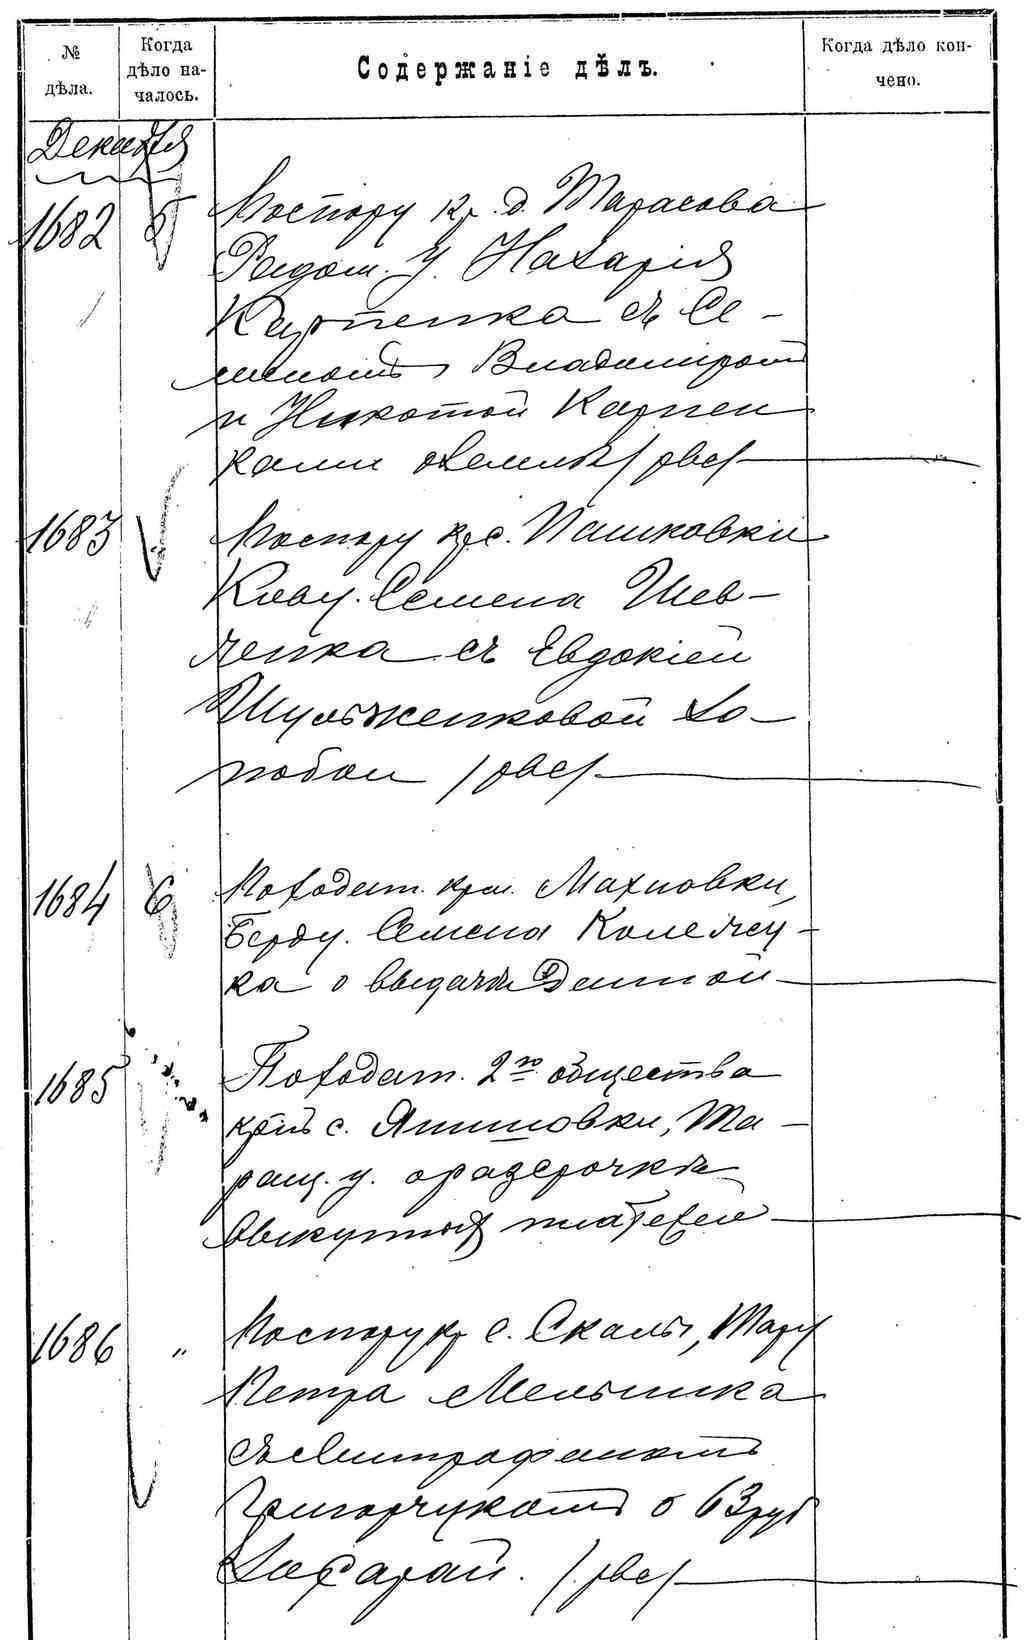 № дѣла.
Когда дѣло на-чалось.
Содержаніе дѣлъ.
Когда дѣло кон-чено.
Декабря
1682 5 По спору кр. д. Тарасова
Радом. у. Назарія
Карпенка съ Се-
меномъ, Владиміромъ
и Никитой Карпен
ками о землѣ /рвс/
1683 По спору кр. с. Пашковки
Кіевų. Семена Шев-
ченка съ Евдокіей
Шульженковой за
побои /рвс/
1684 6 По ходат. кр. м. Махновки,
Берд у. Семена Колемеч-
ка о выдачѣ данной
1685 По ходат. 2го общества
кр. с. Яншовки, Та-
ращ. у. о разсрочкѣ
выкупныхъ платежей
1686 " По спору кр с. Скалы, Тар у
Петра Мельника
съ Митрофаномъ
Григорчукомъ о 63 руб
за сарай. /рвс/